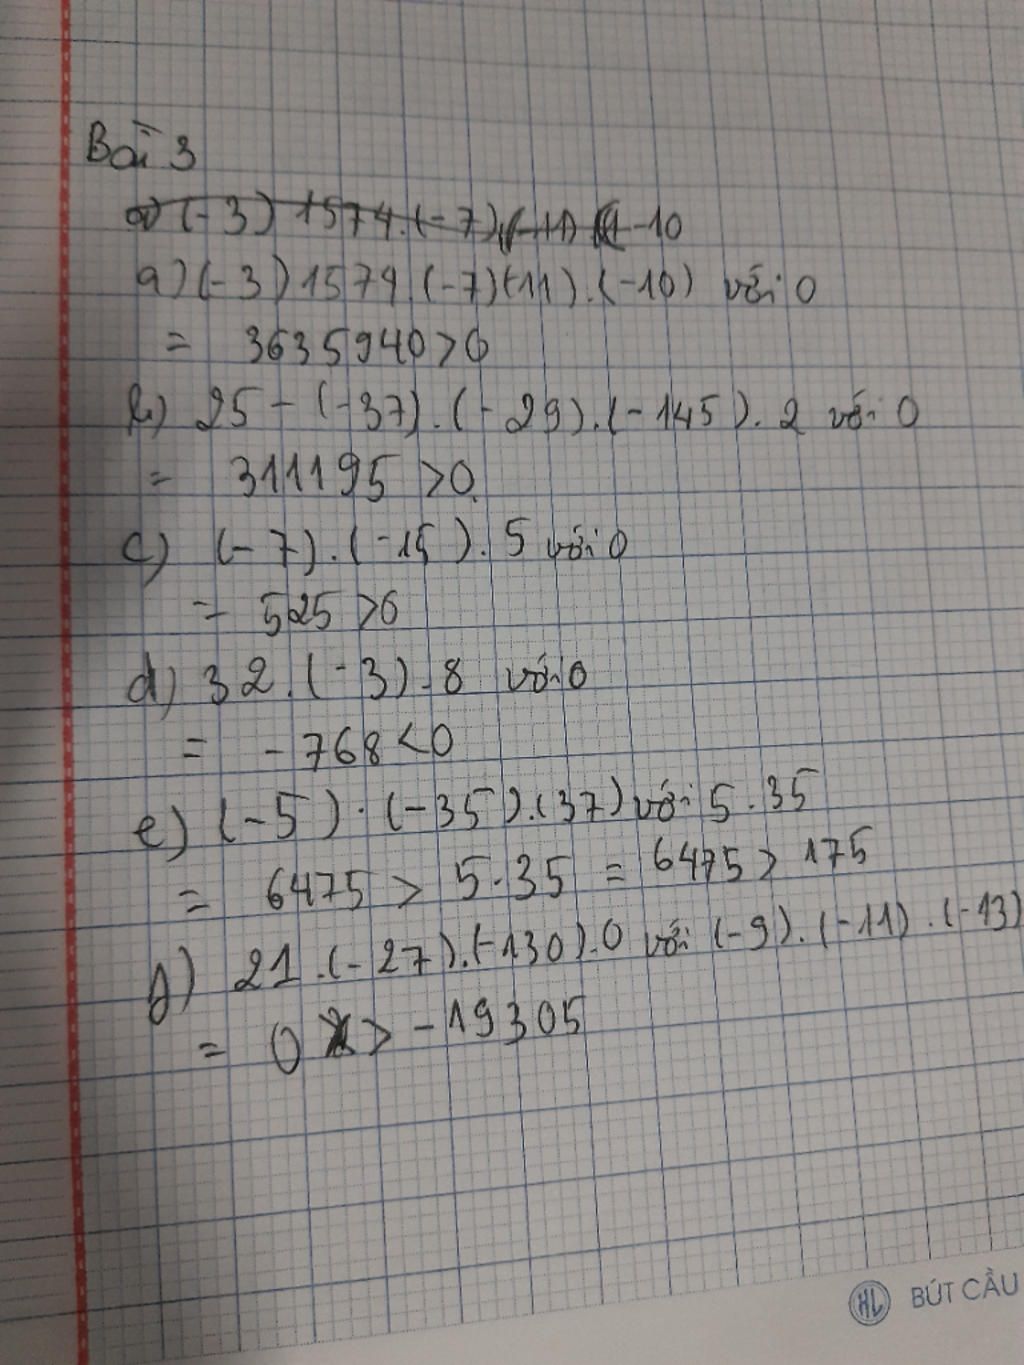 Bài 3
a) (-3) 1574. (-7) (-11) -10
a) (-3) 1574 (-7) (-11) . (-10) với 0
= 3635940 > 0
b) 25 - (-37) . (-29) . (-145) . 2 với 0
= 311195 > 0.
c) (-7) . (-15) . 5 với 0
= 525 > 0
d) 32 . (-3) . 8 với 0
= -768 < 0
e) (-5) . (-35) . (37) với 5 . 35
= 6475 > 5 . 35 = 6475 > 175
g) 21 . (-27) . (-130) . 0 với (-9) . (-11) . (-13)
= 0 > -19305
HL BÚT CẦU